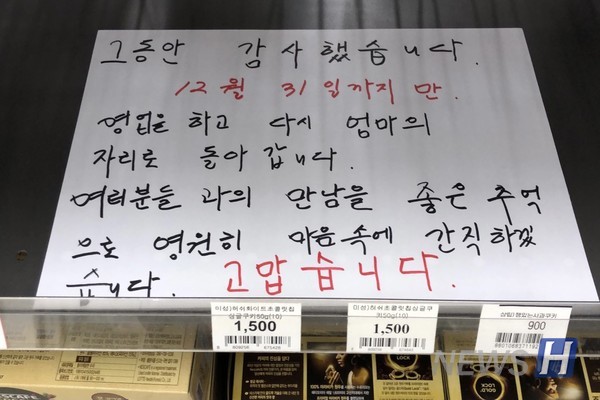 그동안 감사했습니다.
12월 31일까지 만.
영업을 하고 다시 엄마의
자리로 돌아 갑니다.
여러분들 과의 만남을 좋은 추억
으로 영원히 마음속에 간직 하겠
습니다. 고맙습니다.
1,500
1,500
900
GOLD
LOCK
NEWS H